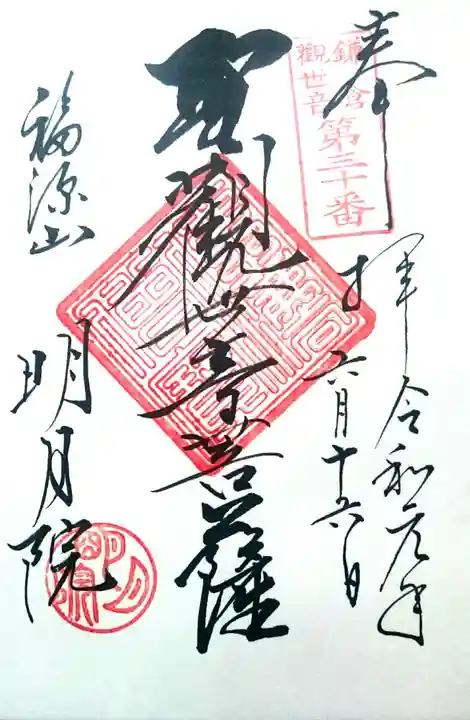 奉拝
鎌倉
觀世音
第三十番
令和元年
六月十六日
聖觀世音菩薩
福源山
明月院